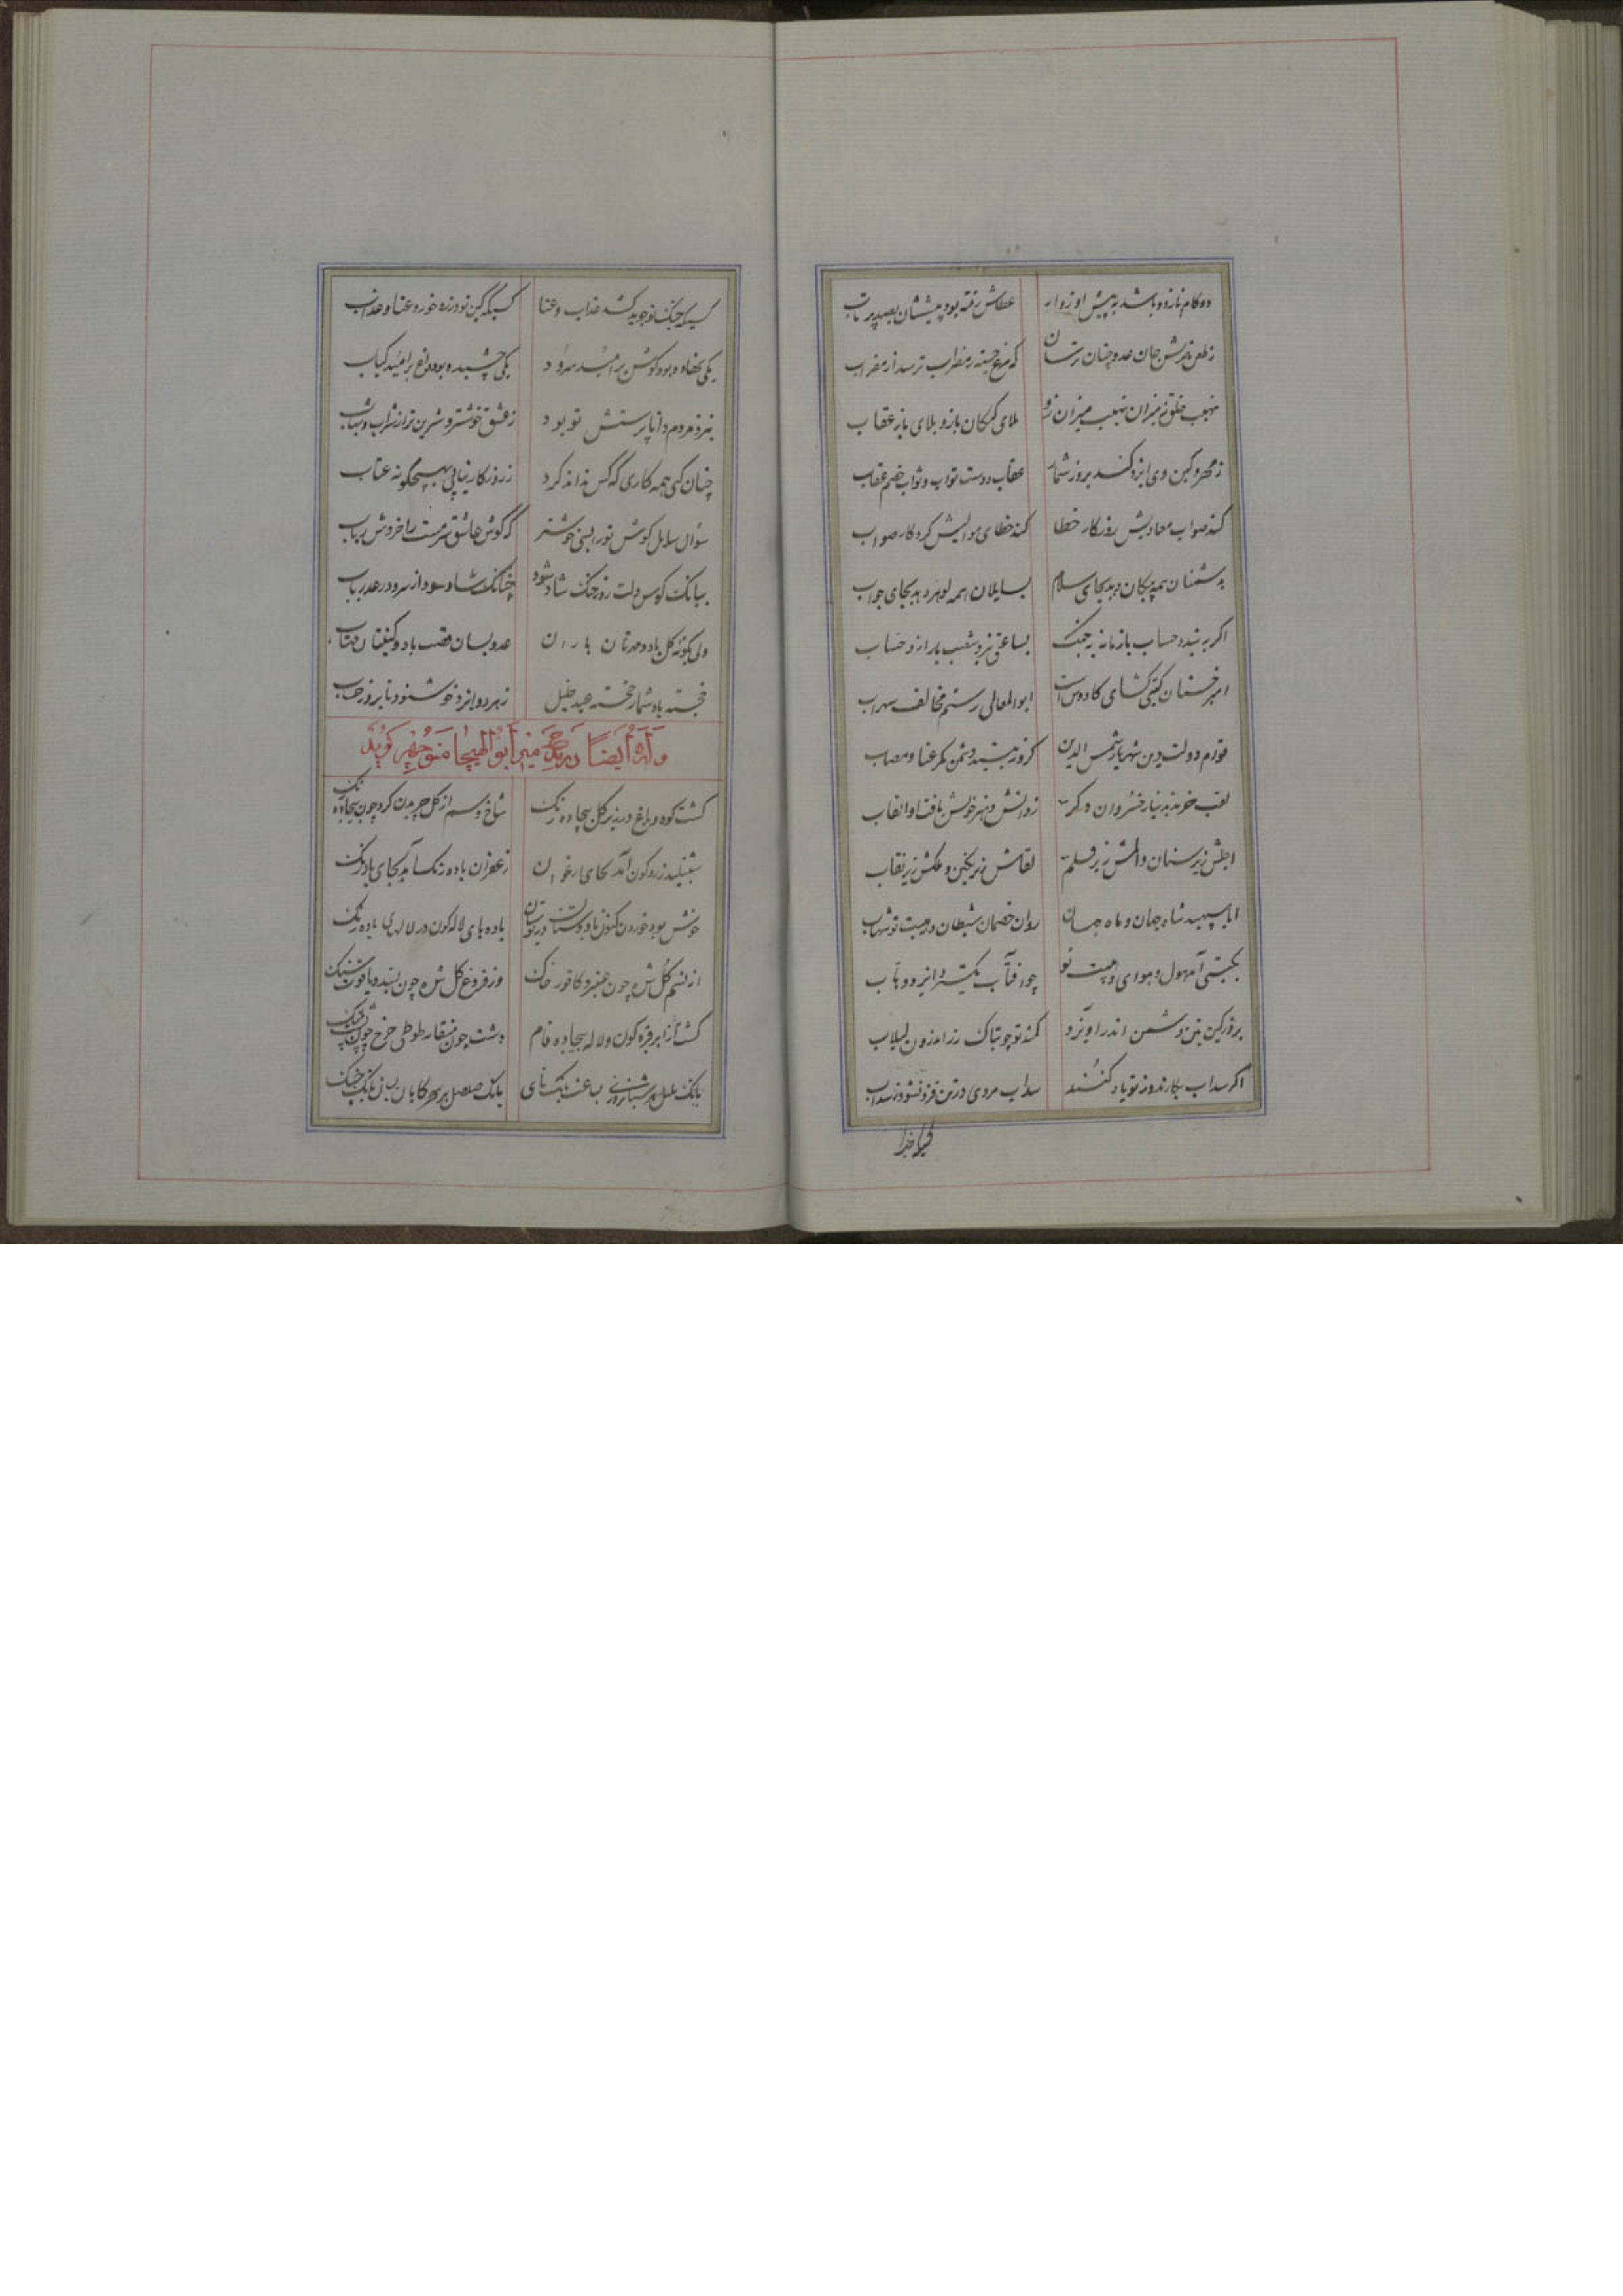 دو کام نازده باشد به پیش او زوار عطاش رفته بود پیششان بصد پرتاب
ز طعن نیزش جان عدو چنان ترسان که مرغ خسته ز مضراب ترسد از مضراب
نهیب خلق ز میزان نهیب میزان زو بلای کبکان باز و بلای باز عقاب
ز مهر و کین وی ایزد کند بروز شمار عقاب دوست ثواب و ثواب خصم عقاب
کند صواب معادیش روزکار خطا کند خطای موالیش کردکار صواب
بدشمنان همه پیکان دهد بجای سلام بسایلان همه لوهر دهد بجای جواب
اکر به بندد حساب بازمانه به جنک بساعتی نبرد شغب باز از و حساب
امیر خستان کیتی کشای کاوس است ابوالمعالی رستم مخالف سهراب
قوام دولت و دین شهریار شمس الدین کزو نبیند دشمن مکر عنا و مصاب
لقب خرند بدینار خسروان دکر ز دانش و هنر خویش یافت او القاب
اجلش زیر سنان و املش زیر قلم لقاش زیر نکین و عکش زیر نقاب
ایا سپهبد شاه جهان و ماه جهان روان خصمان شیطان و هیبت تو شهاب
بکیتی آمد هول و هوای هیبت تو چو افتاب بکسترد ایزد و وهاب
بروز کین بتن دشمن اندر آویزد کمند تو چو بتاک رز اندرون لبلاب
اکر سداب بکارند و ز تو یاد کنند سداب مردی در تن فزون شود ز سداب
کسی که جنک تو جوید کشد عذاب و عنا کسیکه کین تو ورزد خورد عنا و عذاب
یکی نهاده بود کوش بر امید سرود یکی چشیده بود داغ بر امید کباب
بنزد مردم دانا پرستش تو بود ز عشق خوشتر و شیرین تر از شراب و شباب
چنان کنی همه کاری که کس نداند کرد ز روزکار نیابی بهیچکونه عتاب
سؤال سایل کوش تو را بسی خوشتر که کوش عاشق سرمست را خروش رباب
ببانک کوس دلت روز جنک شاد شود چنانک شاد شود از سرود رعد رباب
ولی بکونه کل باد و مهرتان باران عدو بسان قصب باد و کینتان مهتاب
خجسته باد شما را خجسته عید خلیل ز هر دو ایزد خوشنود تا بروز حساب
وَلَهُ اَیضاً در مدح میر ابوالهیجا منوچهر کوید
کشت کوه و باغ در زیر کل بیجاده رنک شاخ و سم از کل چریدن کرد چون بیجاده رنک
شنبلید زرد کون آمد بجای ارغوان زعفران باده رنک آمد بجای بادرنک
خوش بود خوردن کنون با دوستان در بوستان باده های لاله کون در لالهای باده رنک
از نسیم کل شده چون عنبر و کافور خاک وز فروغ کل شده چون بسد و یاقوت سنک
کشت از ابر فیره کون و لاله بیجاده فام دشت چون منقار طوطی چرخ چون پشت پلنک
بانک بلبل هر شبانروزی بباغ بانک نای بانک صلصل هر سحرکاهان بسان بانک چنک
کیاه خدا